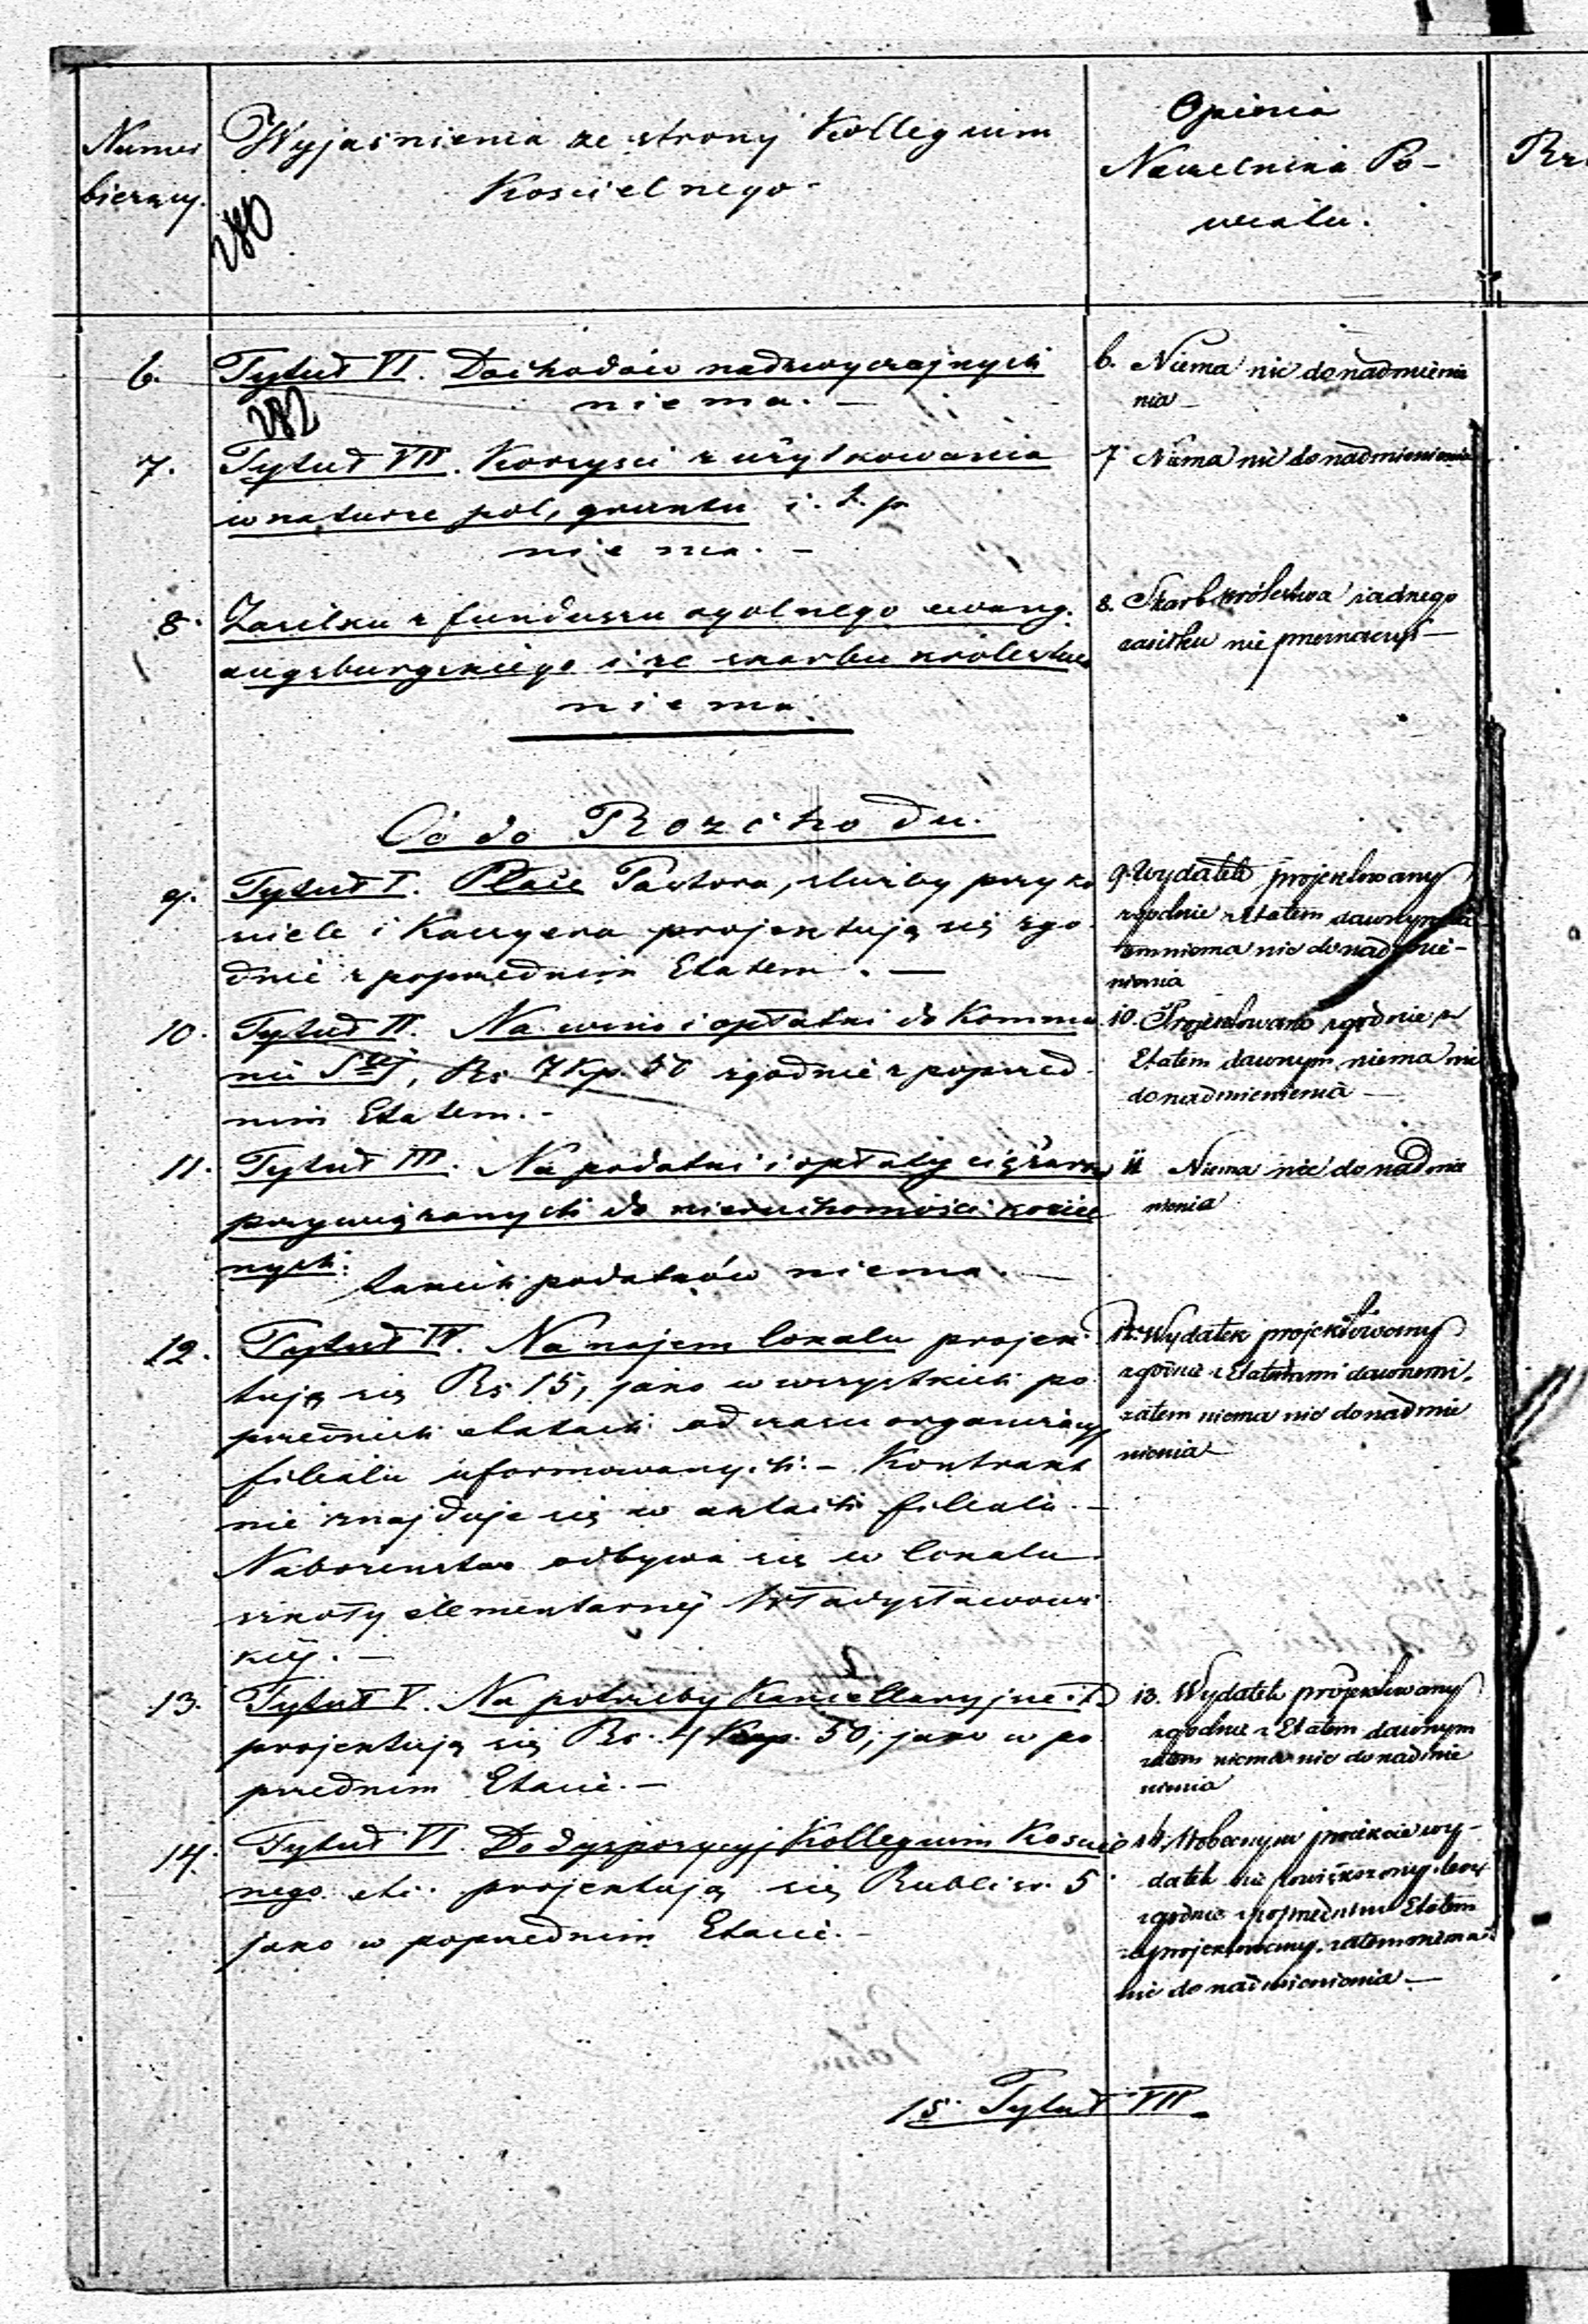 Numer
bierący.
Wyjasnienia ze strony Kollegium
Koscielnego.
Opinia
Naczelnika Po-
wiatu.
280
6. Tytuł VI. Dochodów nadzwyczajnych
niema. —
282
6. Niema nic do nadmienie
nia —
7. Tytuł VII. Korzysci z użytkowania
w naturze pol, gruntu i. t. p.
niema. —
7 Niema nic do nadmienienia
8. Zasilku z funduszu ogolnego ewang.
augsburgskiego i ze skarbu królestwa
niema.
8. Skarb królestwa żadnego
zasiłku nie przeznaczył —
Co do Rozchodu.
9. Tytuł I. Płace Pastora, służby przy ko
sciele i Kassyera projektują się zgo
dnie z poprzednim Etatem. —
9. Wydatek projektowany
zgodnie z Etatem dawnym
niema nic do nadmie-
nienia
10. Tytuł II. Na wino i opłatki do Kommu
nii Stej, Rs 7 Kp. 50 zgodnie z poprzed
nim Etatem. -
10. Projektowano zgodnie z
Etatem dawnym niema nic
do nadmienienia —
11. Tytuł III. Na podatki i opłaty ciężarów
przywiązanych do nieruchomości kościel
nych.
takich podatków niema. —
11 Niema nic do nadmie
nienia
12. Tytuł IV. Na najem lokalu projek
tują się Rs 15, jako w wszystkich po
przednich etatach od czasu organizacyj
filiału uformowanych. — Kontrakt
nie znajduje się w aktach filiału. —
Naborenstwo odbywa się w lokalu
szkoły elementarnej Władysławows
kiej. —
12. Wydatek projektowany
zgodnie z Etatami dawnemi,
zatem niema nic do nadmie
nienia
13. Tytuł V. Na potrzeby Kancellaryjne i t.
projektują się Rs. 4 Kop. 50, jako w po
przednim Etacie. —
13. Wydatek projektowany
zgodnie z Etatem dawnym
zatem niema nic do nadmie
nienia
14. Tytuł VI. Do dyspozycyj Kollegium Koscie
nego etc. projektują się Rubli sr. 5
jako w poprzednim Etacie. —
14. W obecnym projekcie wy-
datek nie powiększony, lecz
zgodnie z poprzednim Etatem
zaprojektowany, zatem niema
nic do nadmienienia —
15. Tytuł VII.